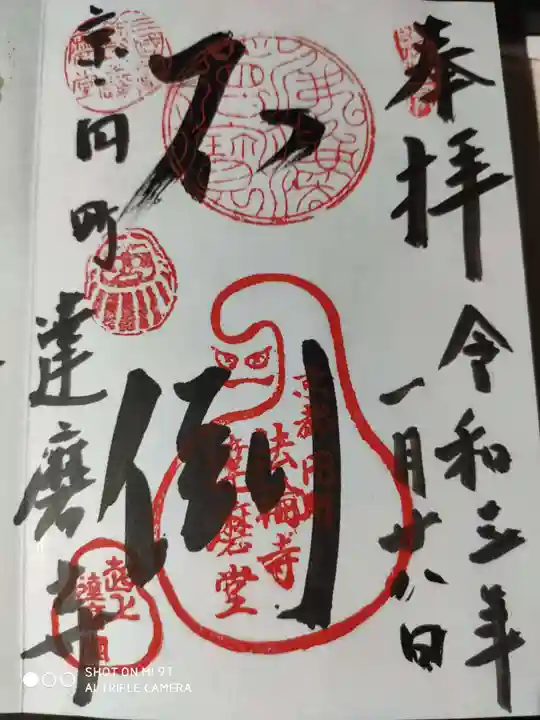 奉拝
令和三年
一月廿八日
不
倒
京・円町
達磨寺
京都円町
法輪寺
達磨堂
SHOT ON MI 9T
AI TRIPLE CAMERA